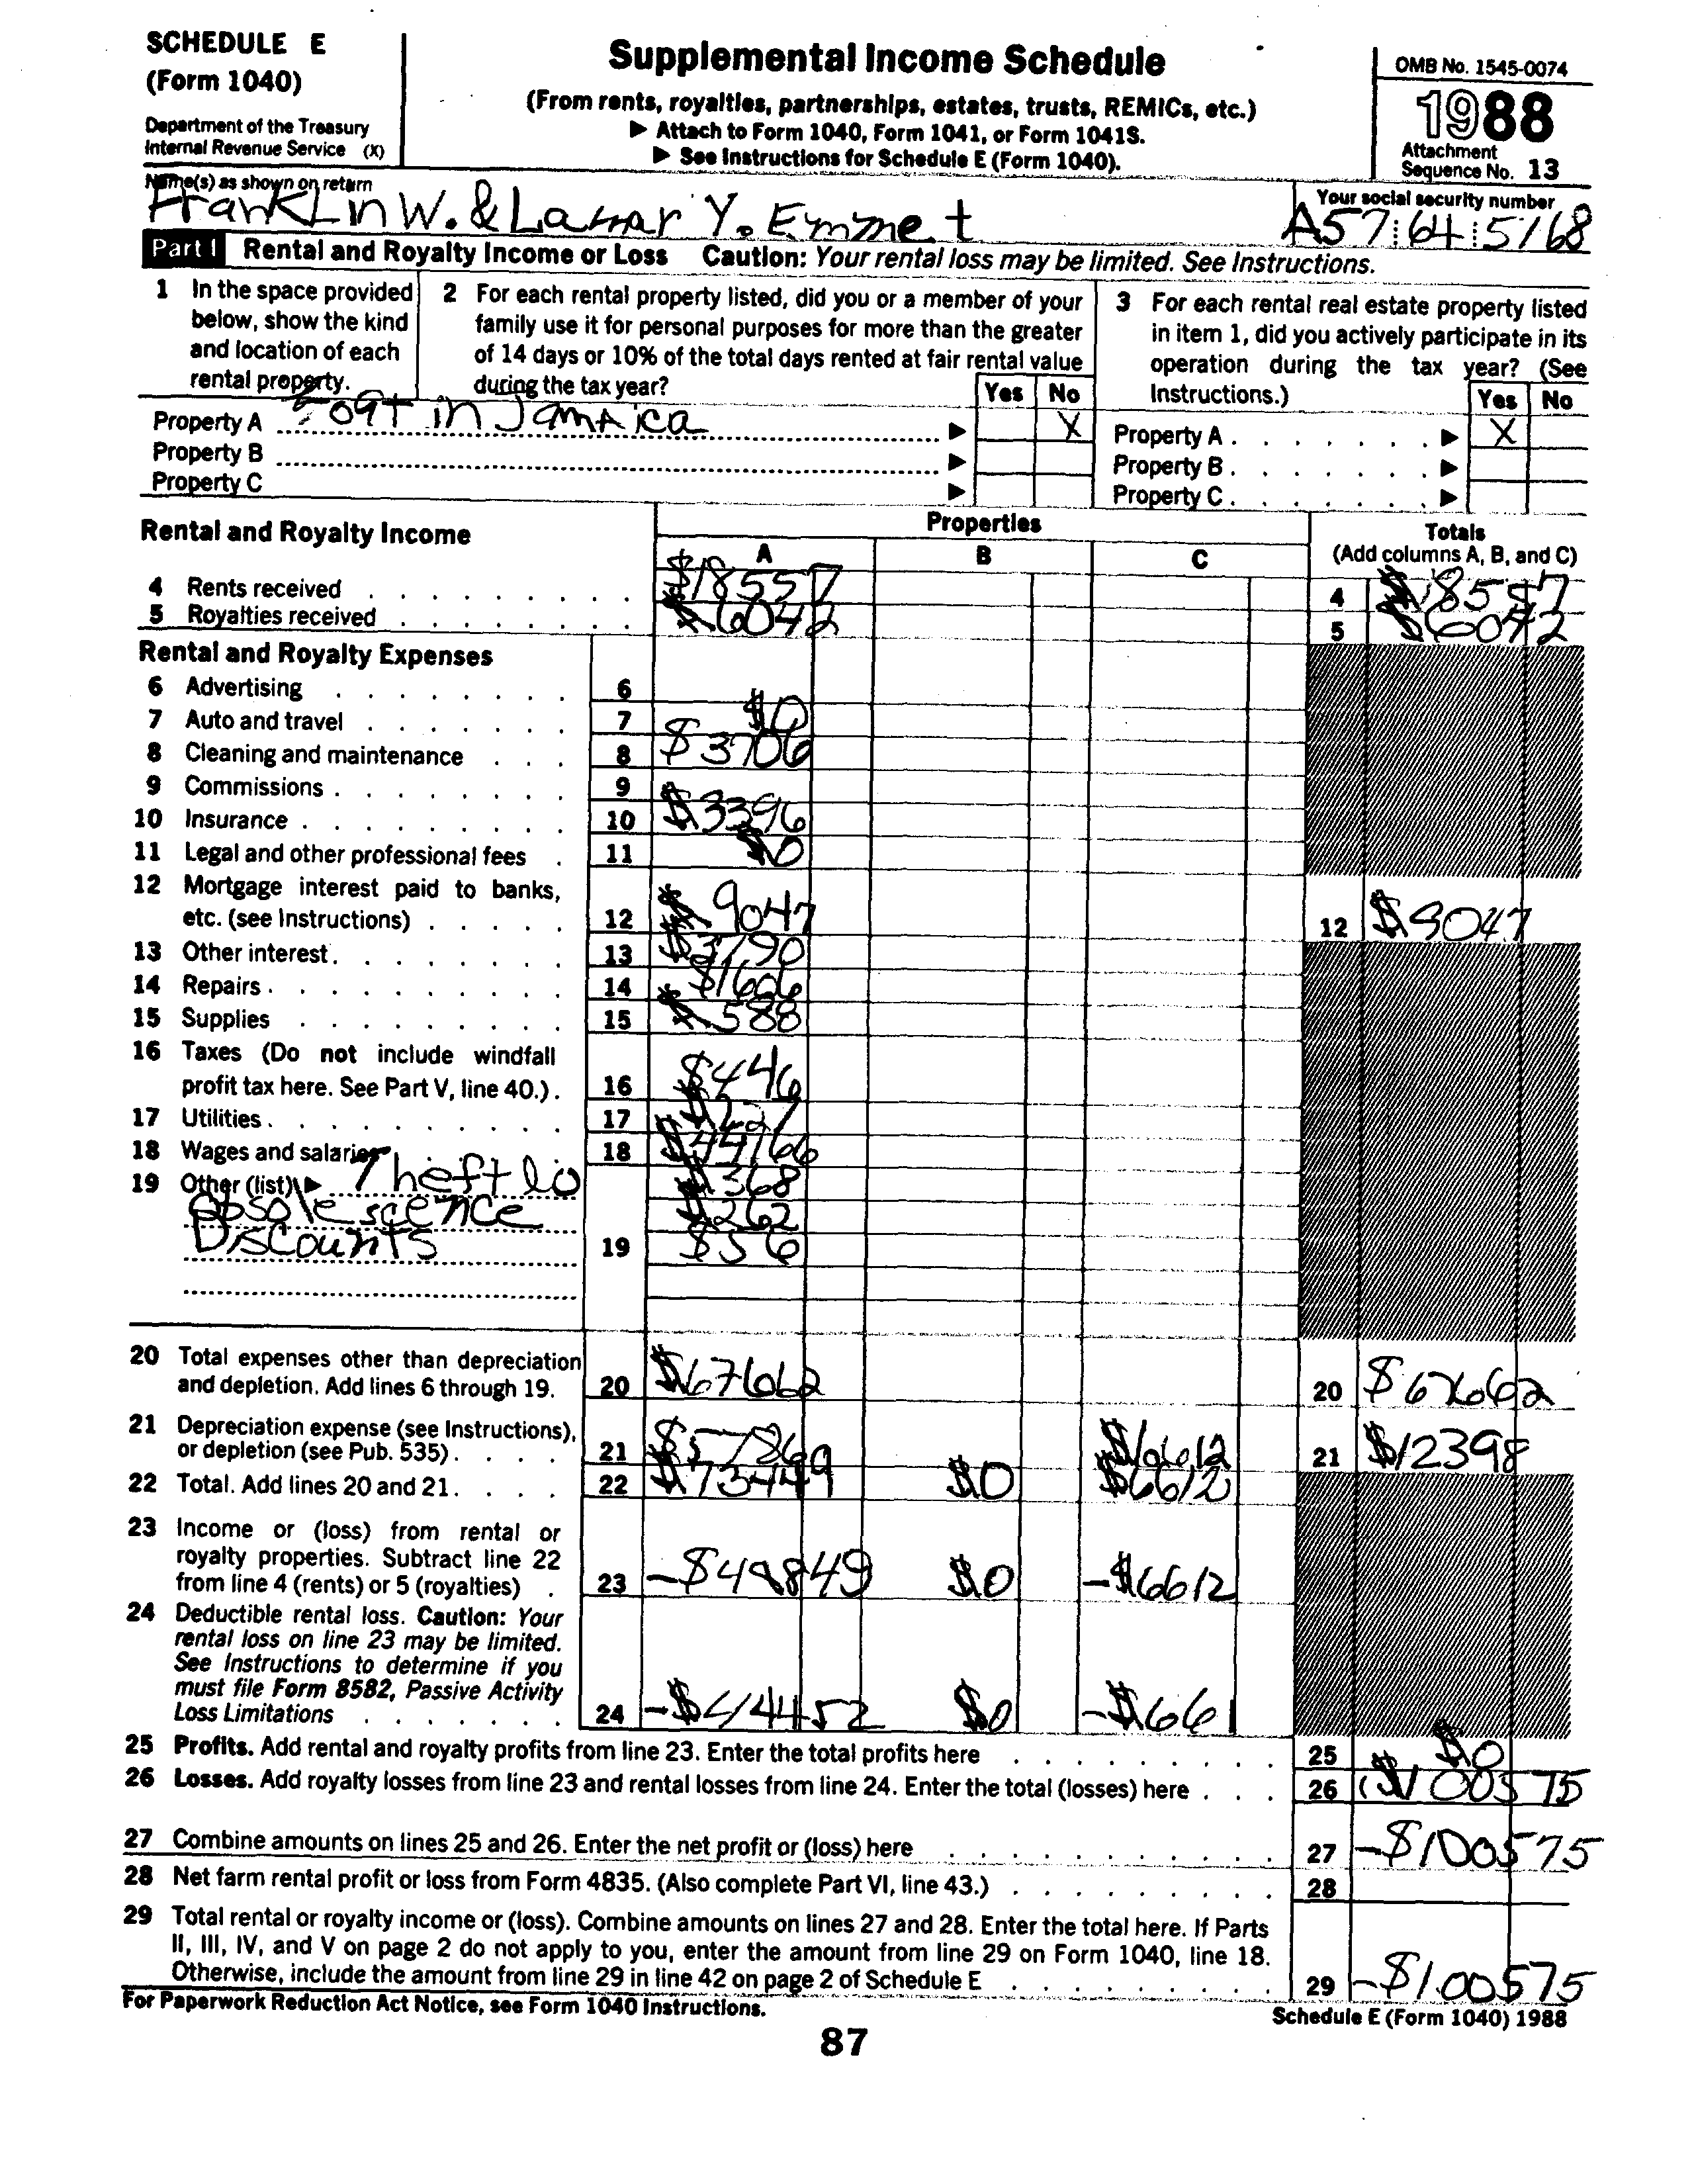 SCHEDULE E
(Form 1040)
Department of the Treasury
Internal Revenue Service (X)
Supplemental Income Schedule
(From rents, royalties, partnerships, estates, trusts, REMICs, etc.)
▶ Attach to Form 1040, Form 1041, or Form 1041S.
▶ See Instructions for Schedule E (Form 1040).
OMB No. 1545-0074
1988
Attachment
Sequence No. 13
Name(s) as shown on return
FrankLin W. & Lamar Y. Emmet
Your social security number
A57 64 5168
Part I Rental and Royalty Income or Loss Caution: Your rental loss may be limited. See Instructions.
1 In the space provided below, show the kind and location of each rental property.
2 For each rental property listed, did you or a member of your family use it for personal purposes for more than the greater of 14 days or 10% of the total days rented at fair rental value during the tax year?
Yes No
3 For each rental real estate property listed in item 1, did you actively participate in its operation during the tax year? (See Instructions.)
Yes No
Property A in Jamaica ▶ X
Property A ▶ X
Property B ▶
Property B ▶
Property C ▶
Property C ▶
Rental and Royalty Income
Properties
A B C
Totals
(Add columns A, B, and C)
4 Rents received $18557 4 $18557
5 Royalties received $6042 5 $6042
Rental and Royalty Expenses
6 Advertising 6
7 Auto and travel 7 $0
8 Cleaning and maintenance 8 $3706
9 Commissions 9
10 Insurance 10 $3396
11 Legal and other professional fees 11 $0
12 Mortgage interest paid to banks, etc. (see Instructions) 12 $9047 12 $9047
13 Other interest 13 $3790
14 Repairs 14 $1606
15 Supplies 15 $588
16 Taxes (Do not include windfall profit tax here. See Part V, line 40.) 16 $446
17 Utilities 17
18 Wages and salaries 18 $44166
19 Other (list) ▶ Theft lo $368
Obsolescence $262
Discounts 19 $56
20 Total expenses other than depreciation and depletion. Add lines 6 through 19. 20 $67662 20 $67662
21 Depreciation expense (see Instructions), or depletion (see Pub. 535) 21 $6612 21 $12398
22 Total. Add lines 20 and 21. 22 $73449 $0 $6612
23 Income or (loss) from rental or royalty properties. Subtract line 22 from line 4 (rents) or 5 (royalties) 23 -$48849 $0 -$6612
24 Deductible rental loss. Caution: Your rental loss on line 23 may be limited. See Instructions to determine if you must file Form 8582, Passive Activity Loss Limitations 24 -$44452 $0 -$661
25 Profits. Add rental and royalty profits from line 23. Enter the total profits here 25 $0
26 Losses. Add royalty losses from line 23 and rental losses from line 24. Enter the total (losses) here 26 ($100575
27 Combine amounts on lines 25 and 26. Enter the net profit or (loss) here 27 -$100575
28 Net farm rental profit or loss from Form 4835. (Also complete Part VI, line 43.) 28
29 Total rental or royalty income or (loss). Combine amounts on lines 27 and 28. Enter the total here. If Parts II, III, IV, and V on page 2 do not apply to you, enter the amount from line 29 on Form 1040, line 18. Otherwise, include the amount from line 29 in line 42 on page 2 of Schedule E 29 -$100575
For Paperwork Reduction Act Notice, see Form 1040 Instructions.
Schedule E (Form 1040) 1988
87